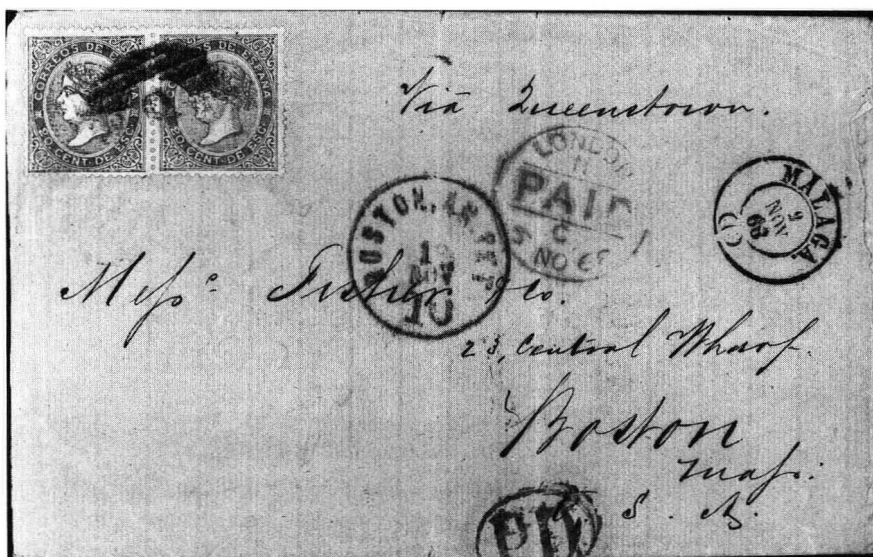 CORREOS DE ESPAÑA
20 CENT. DE ESC.
CENT. DE ESC.
Via Queenstown.
LONDON
PAID
NO 68
MALAGA.
2
NOV
68
BOSTON. AM. PKT.
NOV
10
Messrs Fisher & Co.
23, Central Wharf.
Boston
Mass.
U. S. A.
PD